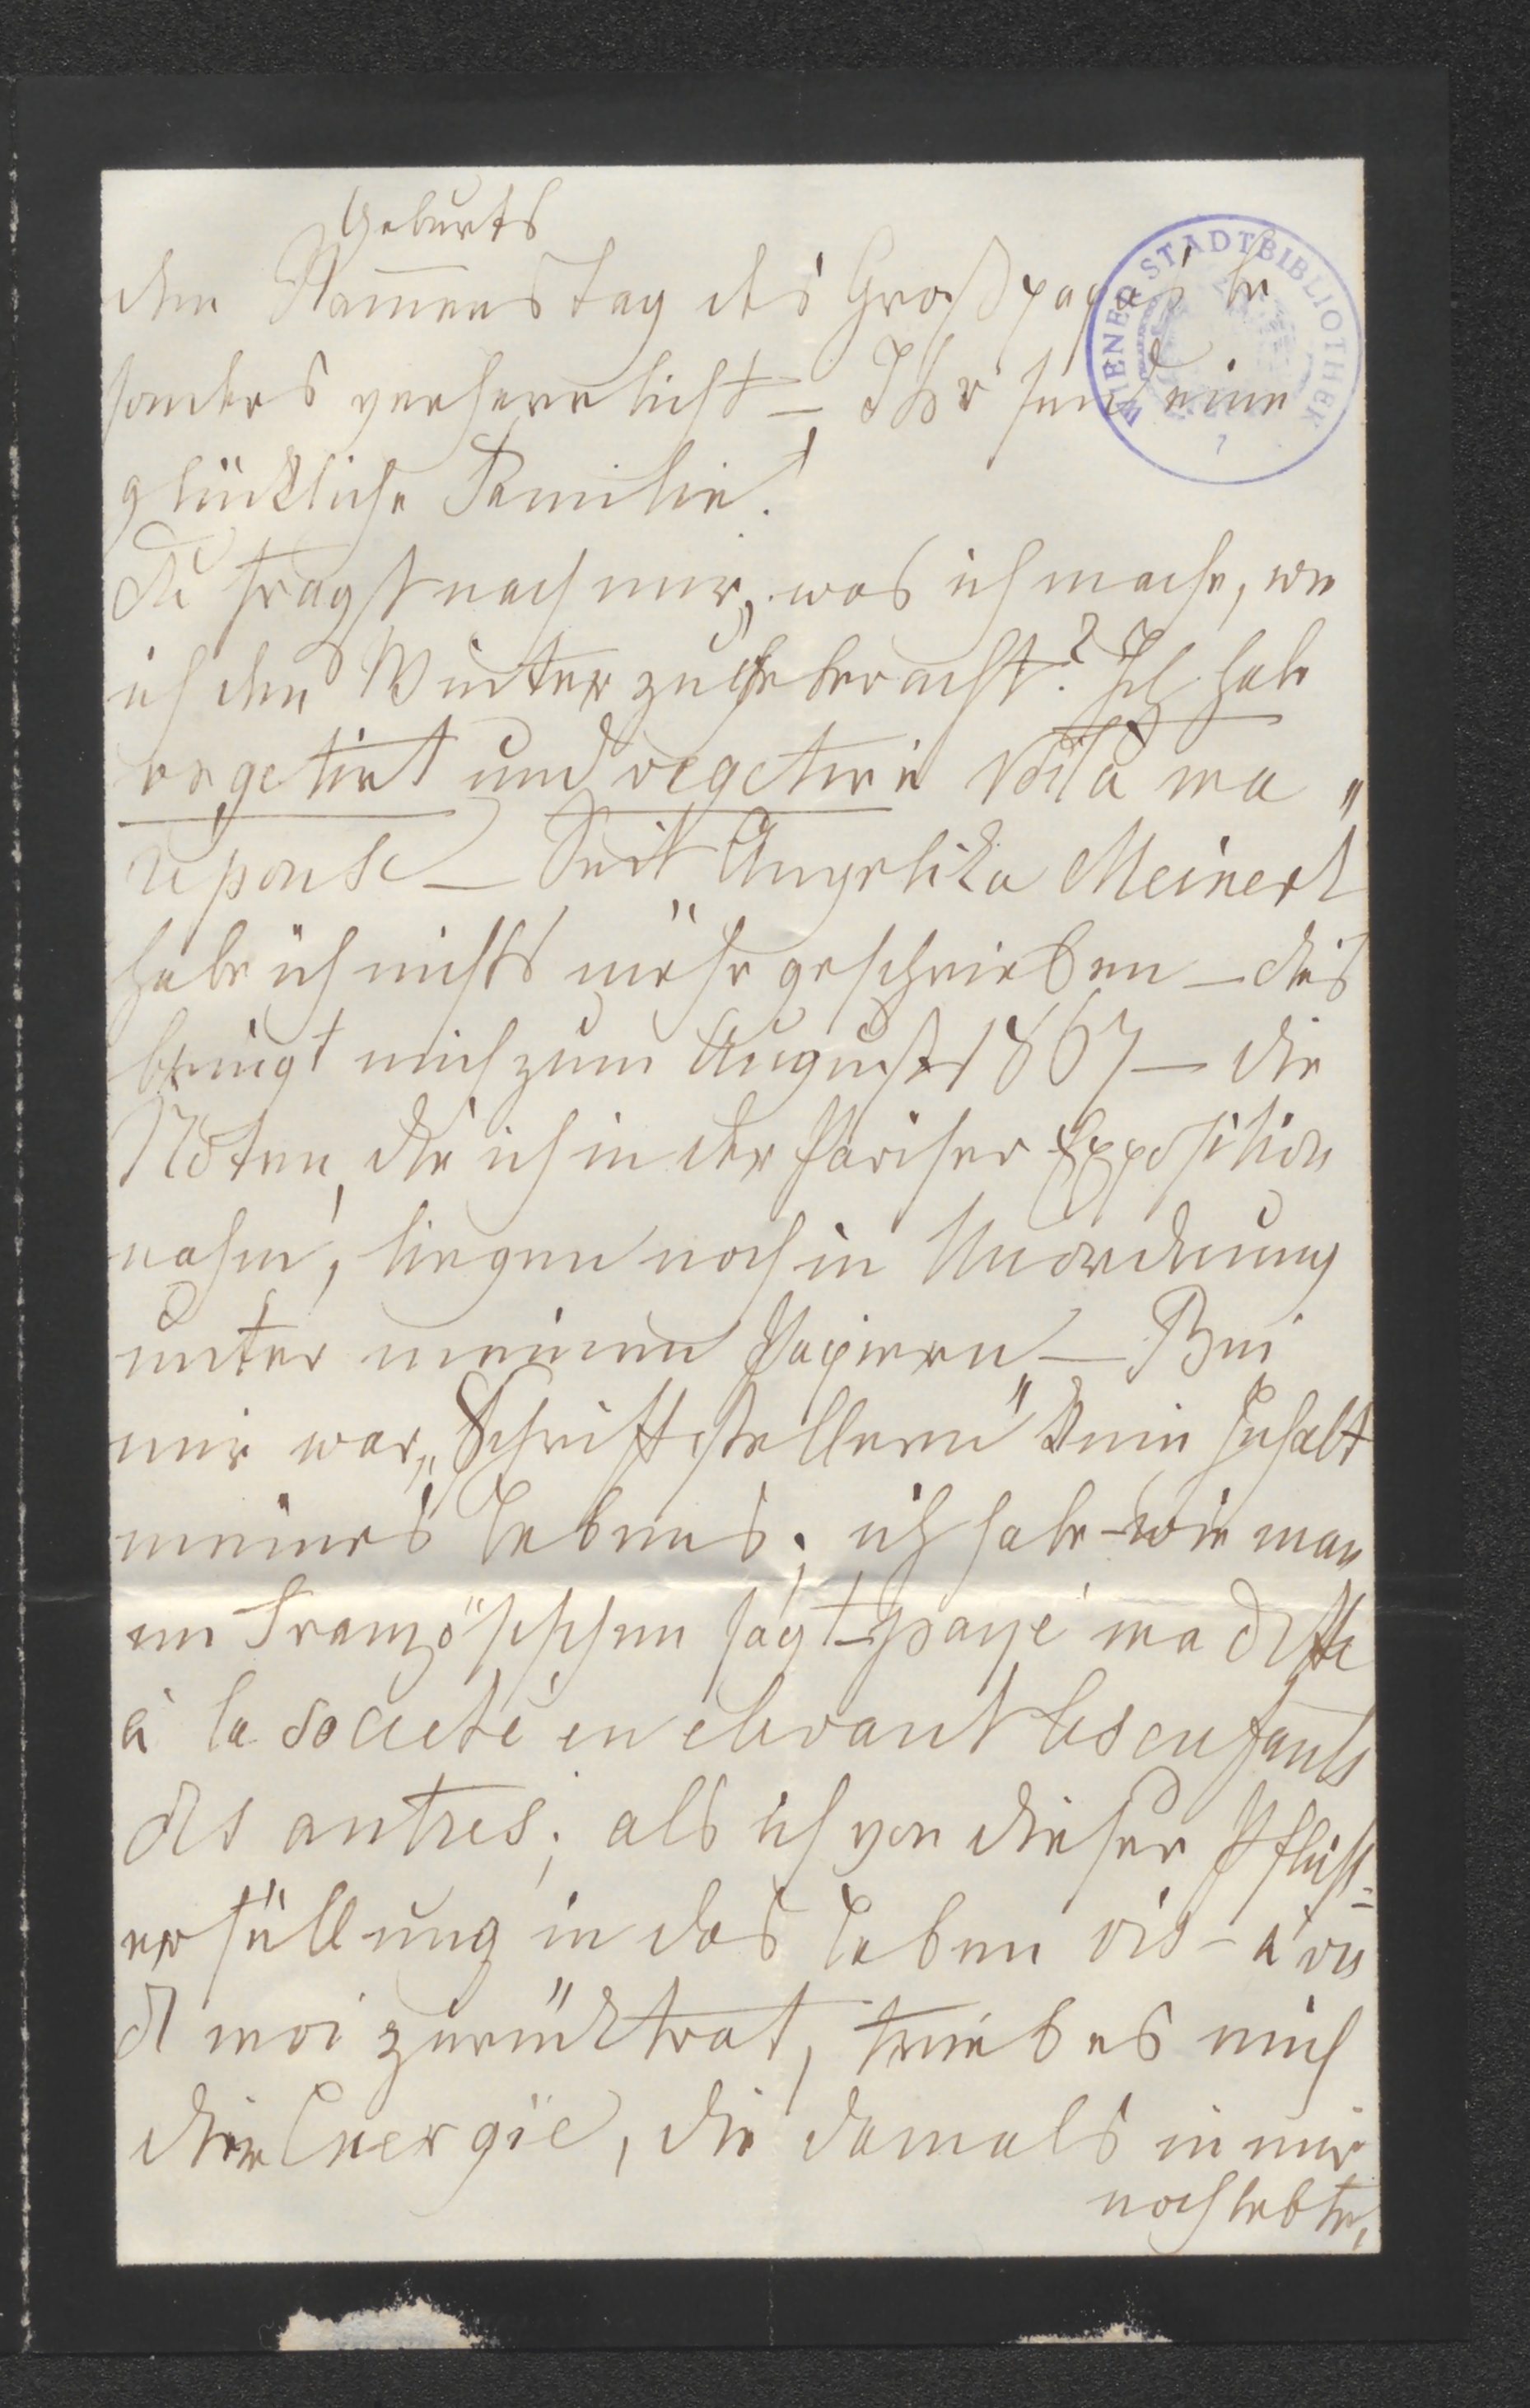 Geburts
den Namenstag des Großpapas be
sonders verherrlicht – Ihr seid eine
glückliche Familie!
Du fragst nach mir, was ich mache, wie
ich den Winter zugebracht? Ich habe
vegetirt und vegetire voila ma
réponse – Seit „Angelika Meinert"
habe ich nichts mehr geschrieben – dies
bringt mich zum August 1867 – die
Noten, die ich in der Pariser Exposition
nahm, liegen noch in Unordnung
unter meinen Papieren – Bei
mir war „Schriftstellern" kein Inhalt
meines Lebens; ich habe – wie man
im Französischen sagt – payé ma dette
à la societé en elevant les enfants
des autres; als ich von dieser Pflicht=
erfüllung in das Leben vis-à vis
de moi zurücktrat, trieb es mich
die Energie, die damals in mir
noch lebte,
WIENER STADTBIBLIOTHEK